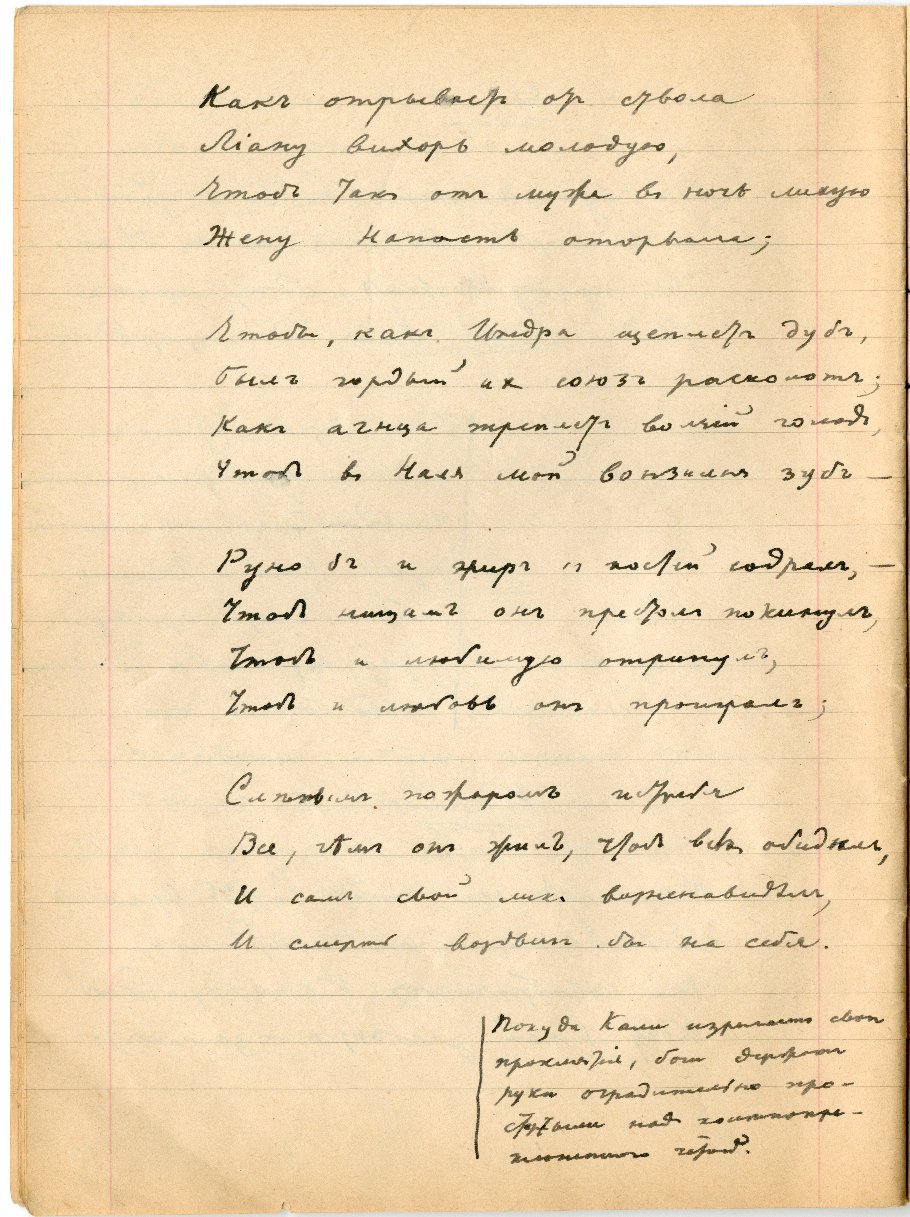 Какъ отрываетъ отъ ствола
Ліану вихорь молодую,
Чтобъ такъ отъ мужа въ ночь лихую
Жену напасть оторвала;
Чтобы, какъ Индра щеплетъ дубъ,
Былъ гордый их союзъ расколотъ;
Какъ агнца треплетъ волчій голодъ,
Чтобъ въ Наля мой вонзился зубъ —
Руно бъ и жиръ съ костей содралъ, —
Чтобъ нищимъ онъ престолъ покинулъ,
Чтобъ и любимую отринулъ,
Чтобъ и любовь онъ проигралъ;
Слѣпымъ пожаромъ истребя
Все, чѣмъ онъ жилъ, чтоб всѣхъ обидѣлъ,
И самъ свой ликъ возненавидѣлъ,
И смерть воздвигъ бы на себя.
Покуда Кали изрыгаетъ свои
проклятія, боги держатъ
руки оградительно про-
стертыми над колѣнопре-
клоненного четой.